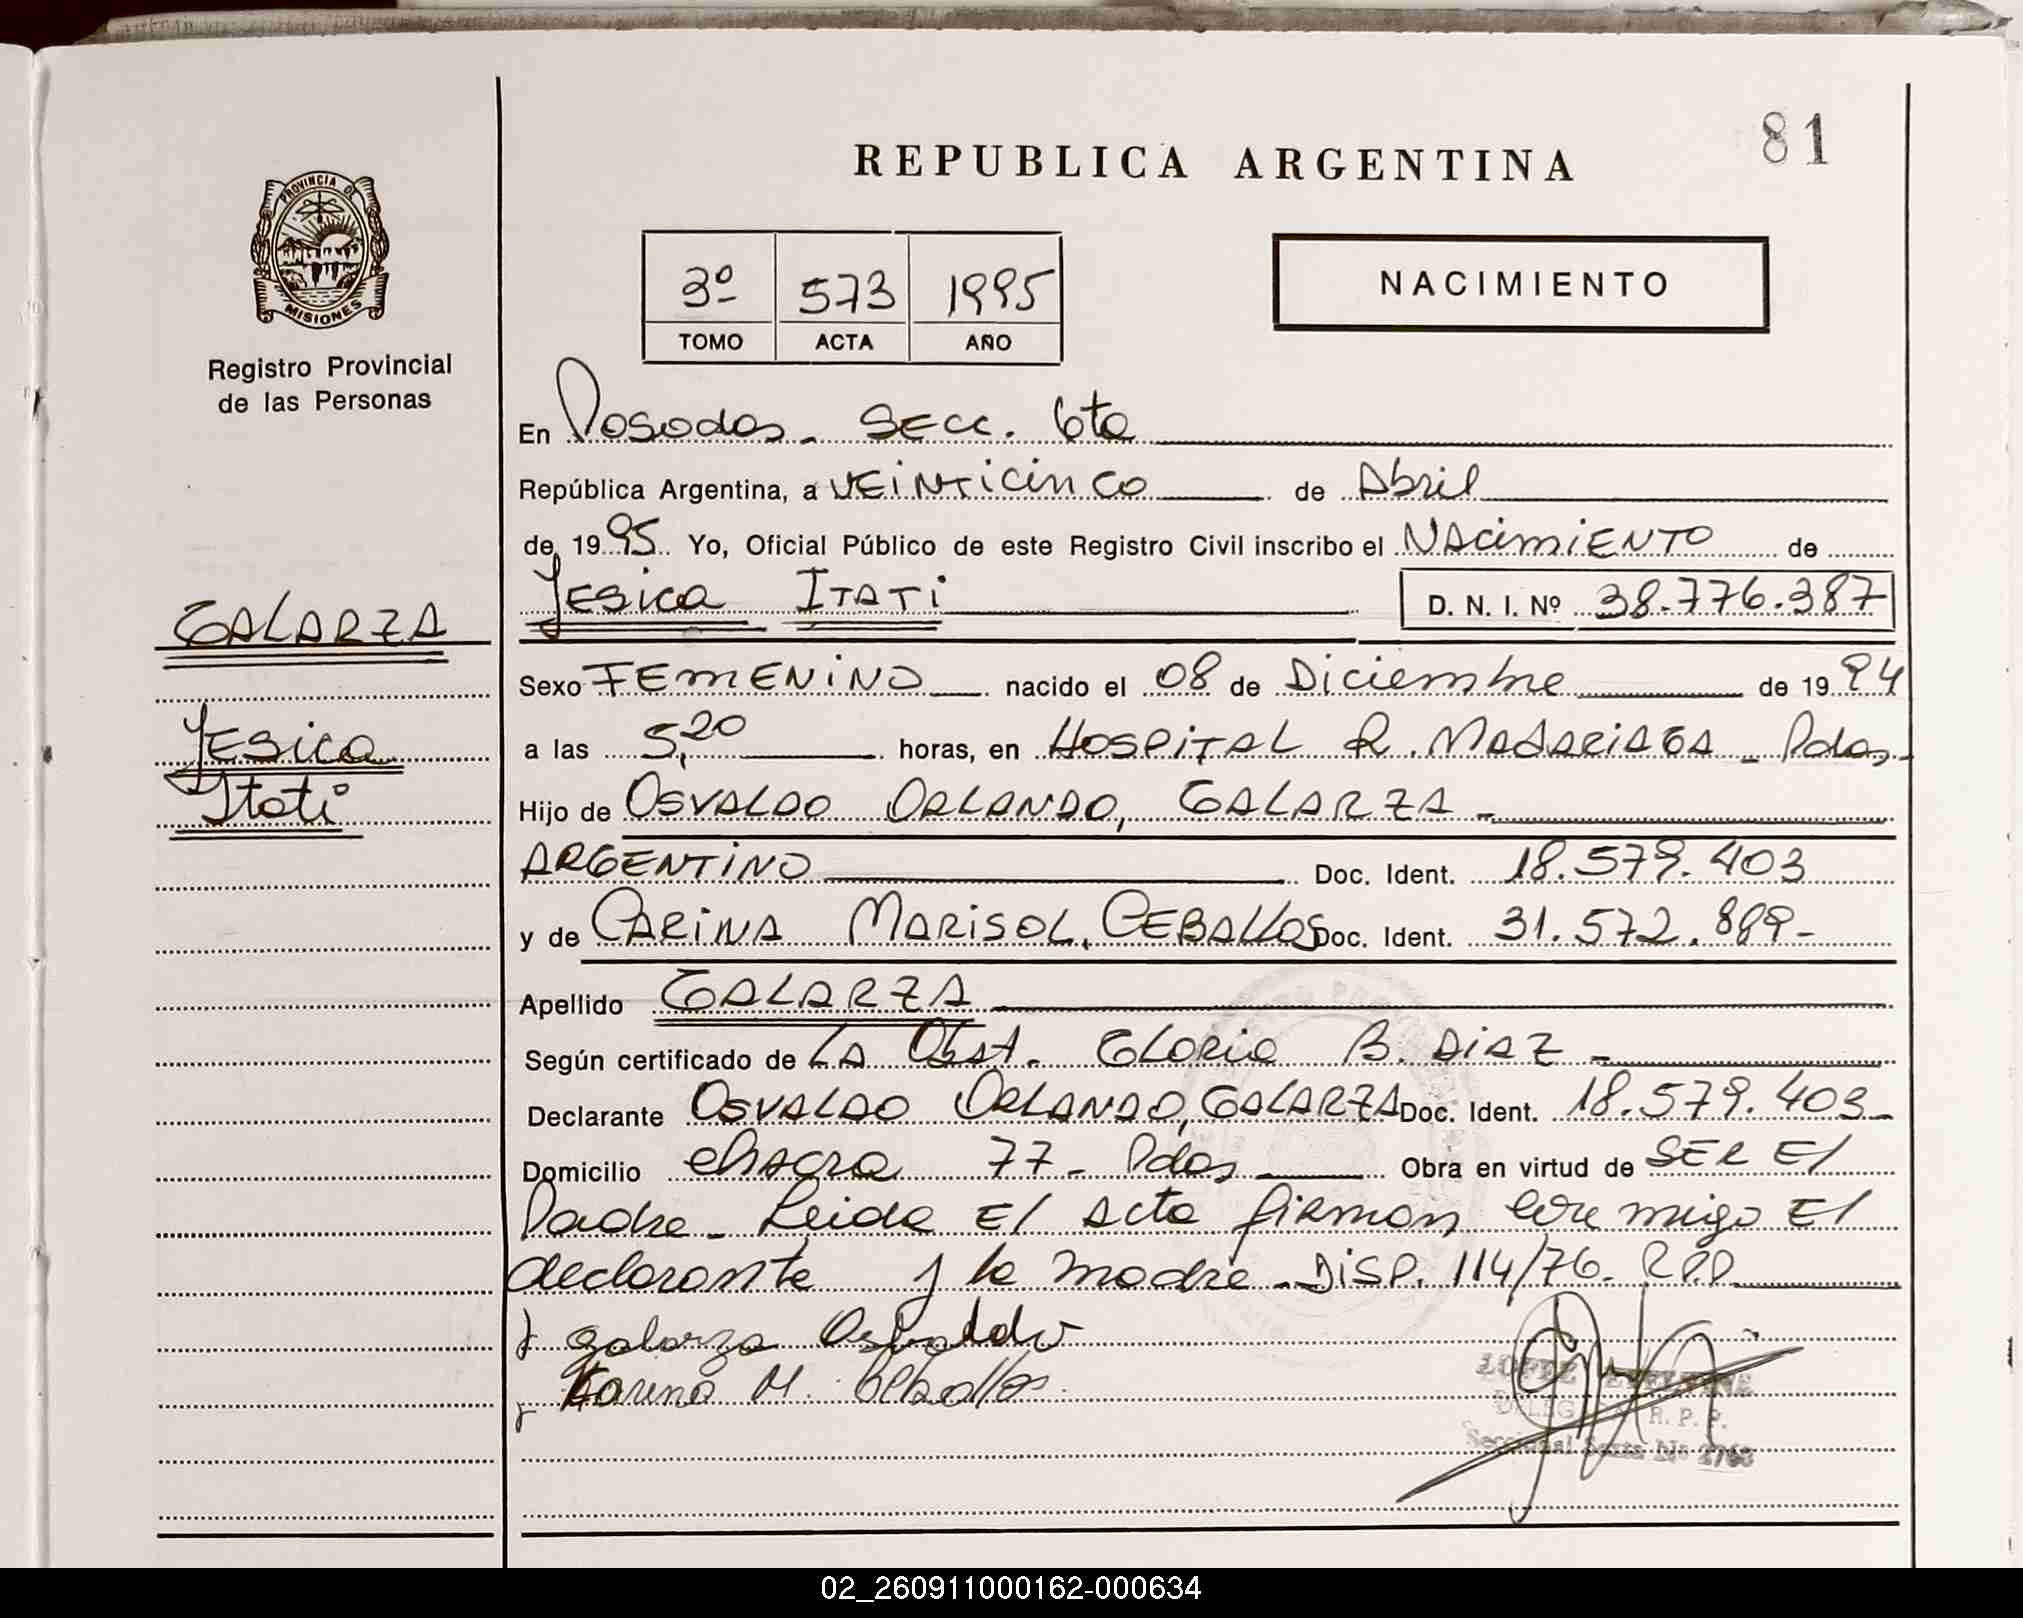 81
REPUBLICA ARGENTINA
PROVINCIA DE
MISIONES
Registro Provincial
de las Personas
3º 573 1995
TOMO ACTA AÑO
NACIMIENTO
En Posadas - Secc. 6ta
República Argentina, a VEiNTiCinCo de Abril
de 1995 Yo, Oficial Público de este Registro Civil inscribo el NACimiENTO de
YESica ITATi D. N. I. Nº 38.776.387
GALARZA
Sexo FEMENiNO nacido el 08 de Diciembre de 1994
YESica
a las 5,20 horas, en HOSPiTAL R. MADARiAGA - Pdas -
Itati
Hijo de OSVALDO ORLANDO, GALARZA -
ARGENTiNO Doc. Ident. 18.579.403
y de CARiNA MARiSOL, CEBALLOS Doc. Ident. 31.572.899 -
Apellido GALARZA
Según certificado de LA Obst. GLORia B. DiAZ -
Declarante OSVALDO ORLANDO, GALARZA Doc. Ident. 18.579.403 -
Domicilio chacra 77 - Pdas Obra en virtud de SER El
Padre - Leida El acta firman conmigo El
declarante y la madre - DiSP. 114/76. R.P.P.
Galarza Osvaldo
Karina M. Ceballos
LOPEZ
R. P. P.
Seccional Sexta
02_260911000162-000634